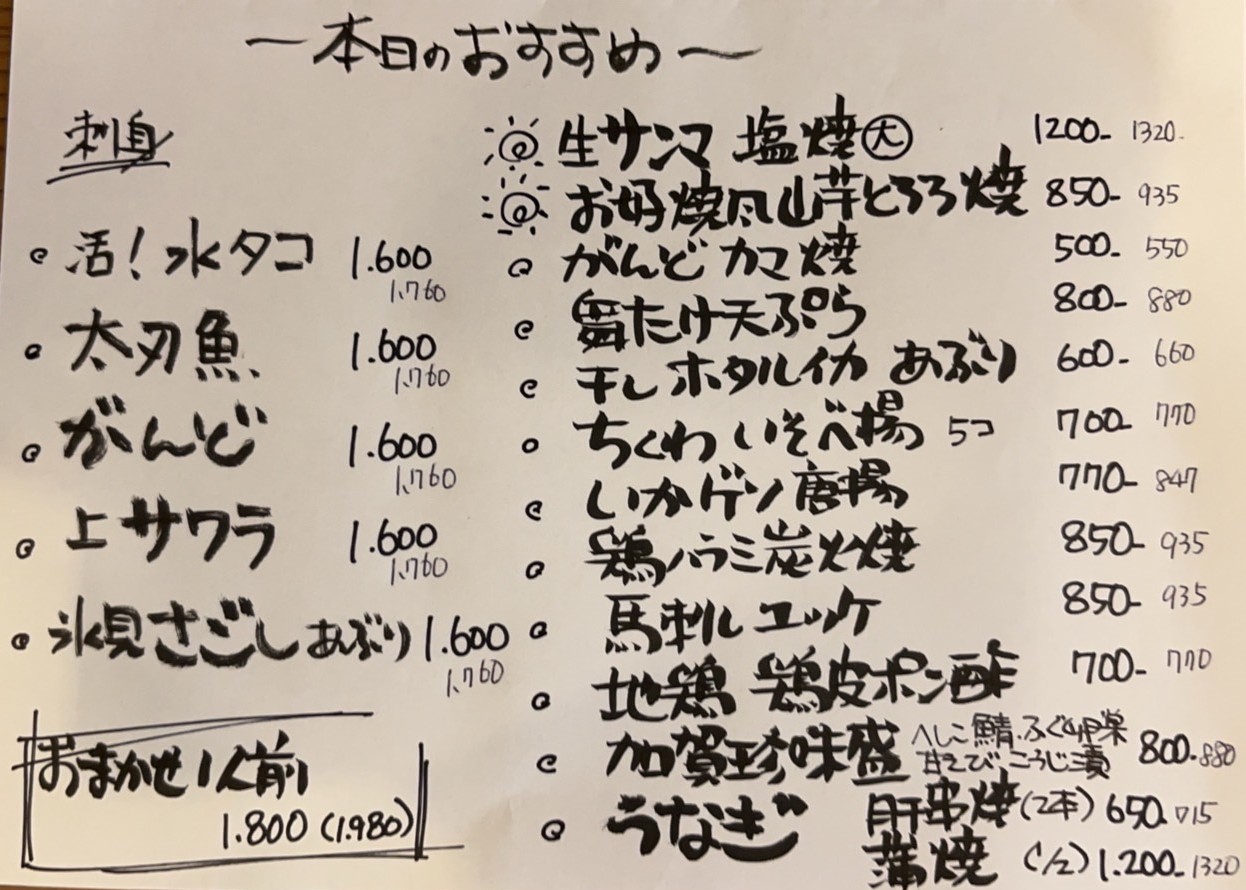 〜本日のおすすめ〜
刺身
活!水タコ 1.600
1.760
太刀魚 1.600
1.760
がんど 1.600
1.760
上サワラ 1.600
1.760
氷見さごしあぶり 1.600
1.760
おまかせ1人前
1.800(1.980)
生サンマ 塩焼㊅ 1200- 1320-
お好焼風山芋とろろ焼 850- 935
がんどカマ焼 500- 550
舞たけ天ぷら 800- 880
干しホタルイカ あぶり 600- 660
ちくわいそべ揚 5コ 700- 770
いかゲソ唐揚 770- 847
鶏ハラミ炭火焼 850- 935
馬刺しユッケ 850- 935
地鶏 鶏皮ポン酢 700- 770
加賀珍味盛 へしこ鯖.ふぐ卵巣 800-880
甘えびこうじ漬
うなぎ 肝串焼(2本) 650.715
蒲焼 (1/2) 1.200-1320